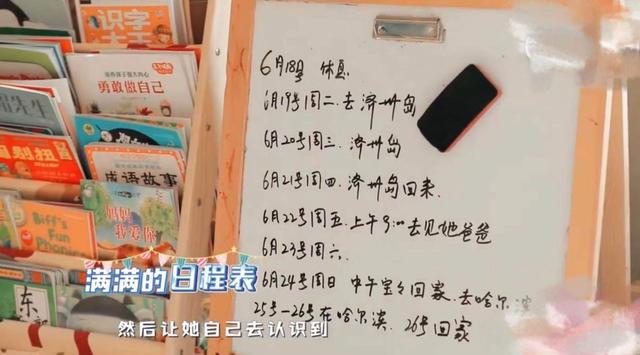 识字
大王
给孩子强大内心
勇敢做自己
先生
别别扭
成语故事
Biff's
Fun
Phonics
妈妈
我爱你
东
6月18号 休息
6月19号周二.去济州岛
6月20号周三.济州岛
6月21号周四.济州岛回来.
6月22号周五.上午9:00去见她爸爸
6月23号周六.
6月24号周日 中午宝々回家.去哈尔滨
25号-26号在哈尔滨.26号回家
满满的日程表
然后让她自己去认识到